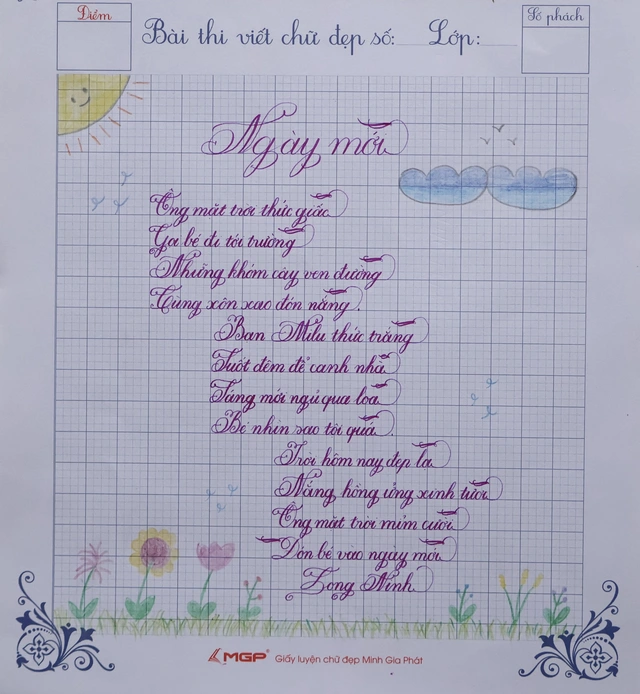 Điểm
Bài thi viết chữ đẹp số: Lớp:
Số phách
Ngày mới
Ông mặt trời thức giấc
Gọi bé đi tới trường
Những khóm cây ven đường
Cùng xôn xao đón nắng.
Bạn Milu thức trắng
Suốt đêm để canh nhà
Sáng mới ngủ qua loa
Bé nhìn sao tội quá.
Trời hôm nay đẹp lạ
Nắng hồng ửng xinh tươi
Ông mặt trời mỉm cười
Đón bé vào ngày mới.
Ninh
MGP® Giấy luyện chữ đẹp Minh Gia Phát